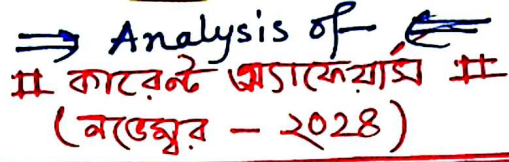 ⇒ Analysis of ⇐
# কারেন্ট অ্যাফেয়ার্স #
(নভেম্বর – ২০২৪)